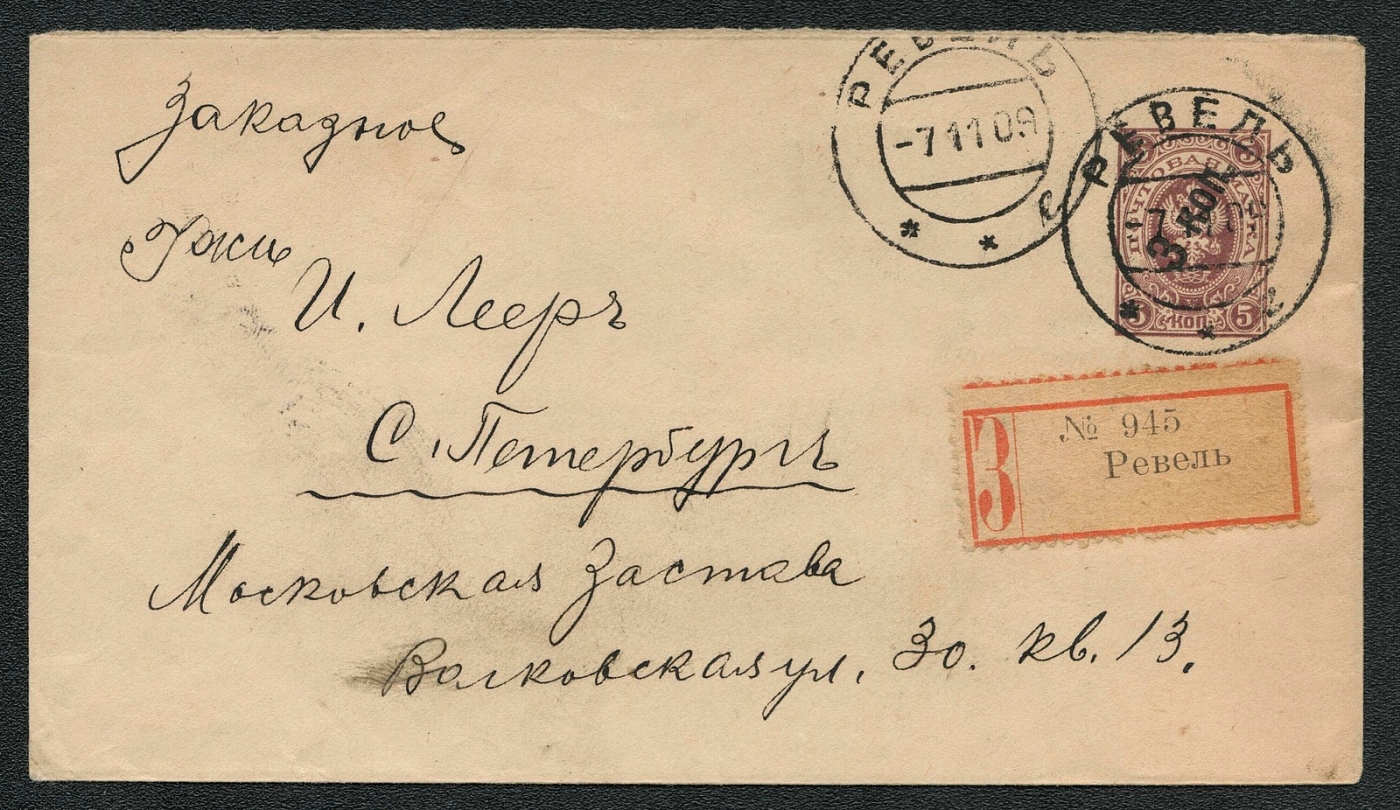 Заказное
РЕВЕЛЬ
-7 11 09
РЕВЕЛЬ
ПОЧТОВАЯ МАРКА
3 КОП
5 КОП. 5
Гжи
И. Лееръ
С. Петербургъ
З
№ 945
Ревель
Московская Застава
Волковская ул. 30. кв. 13.